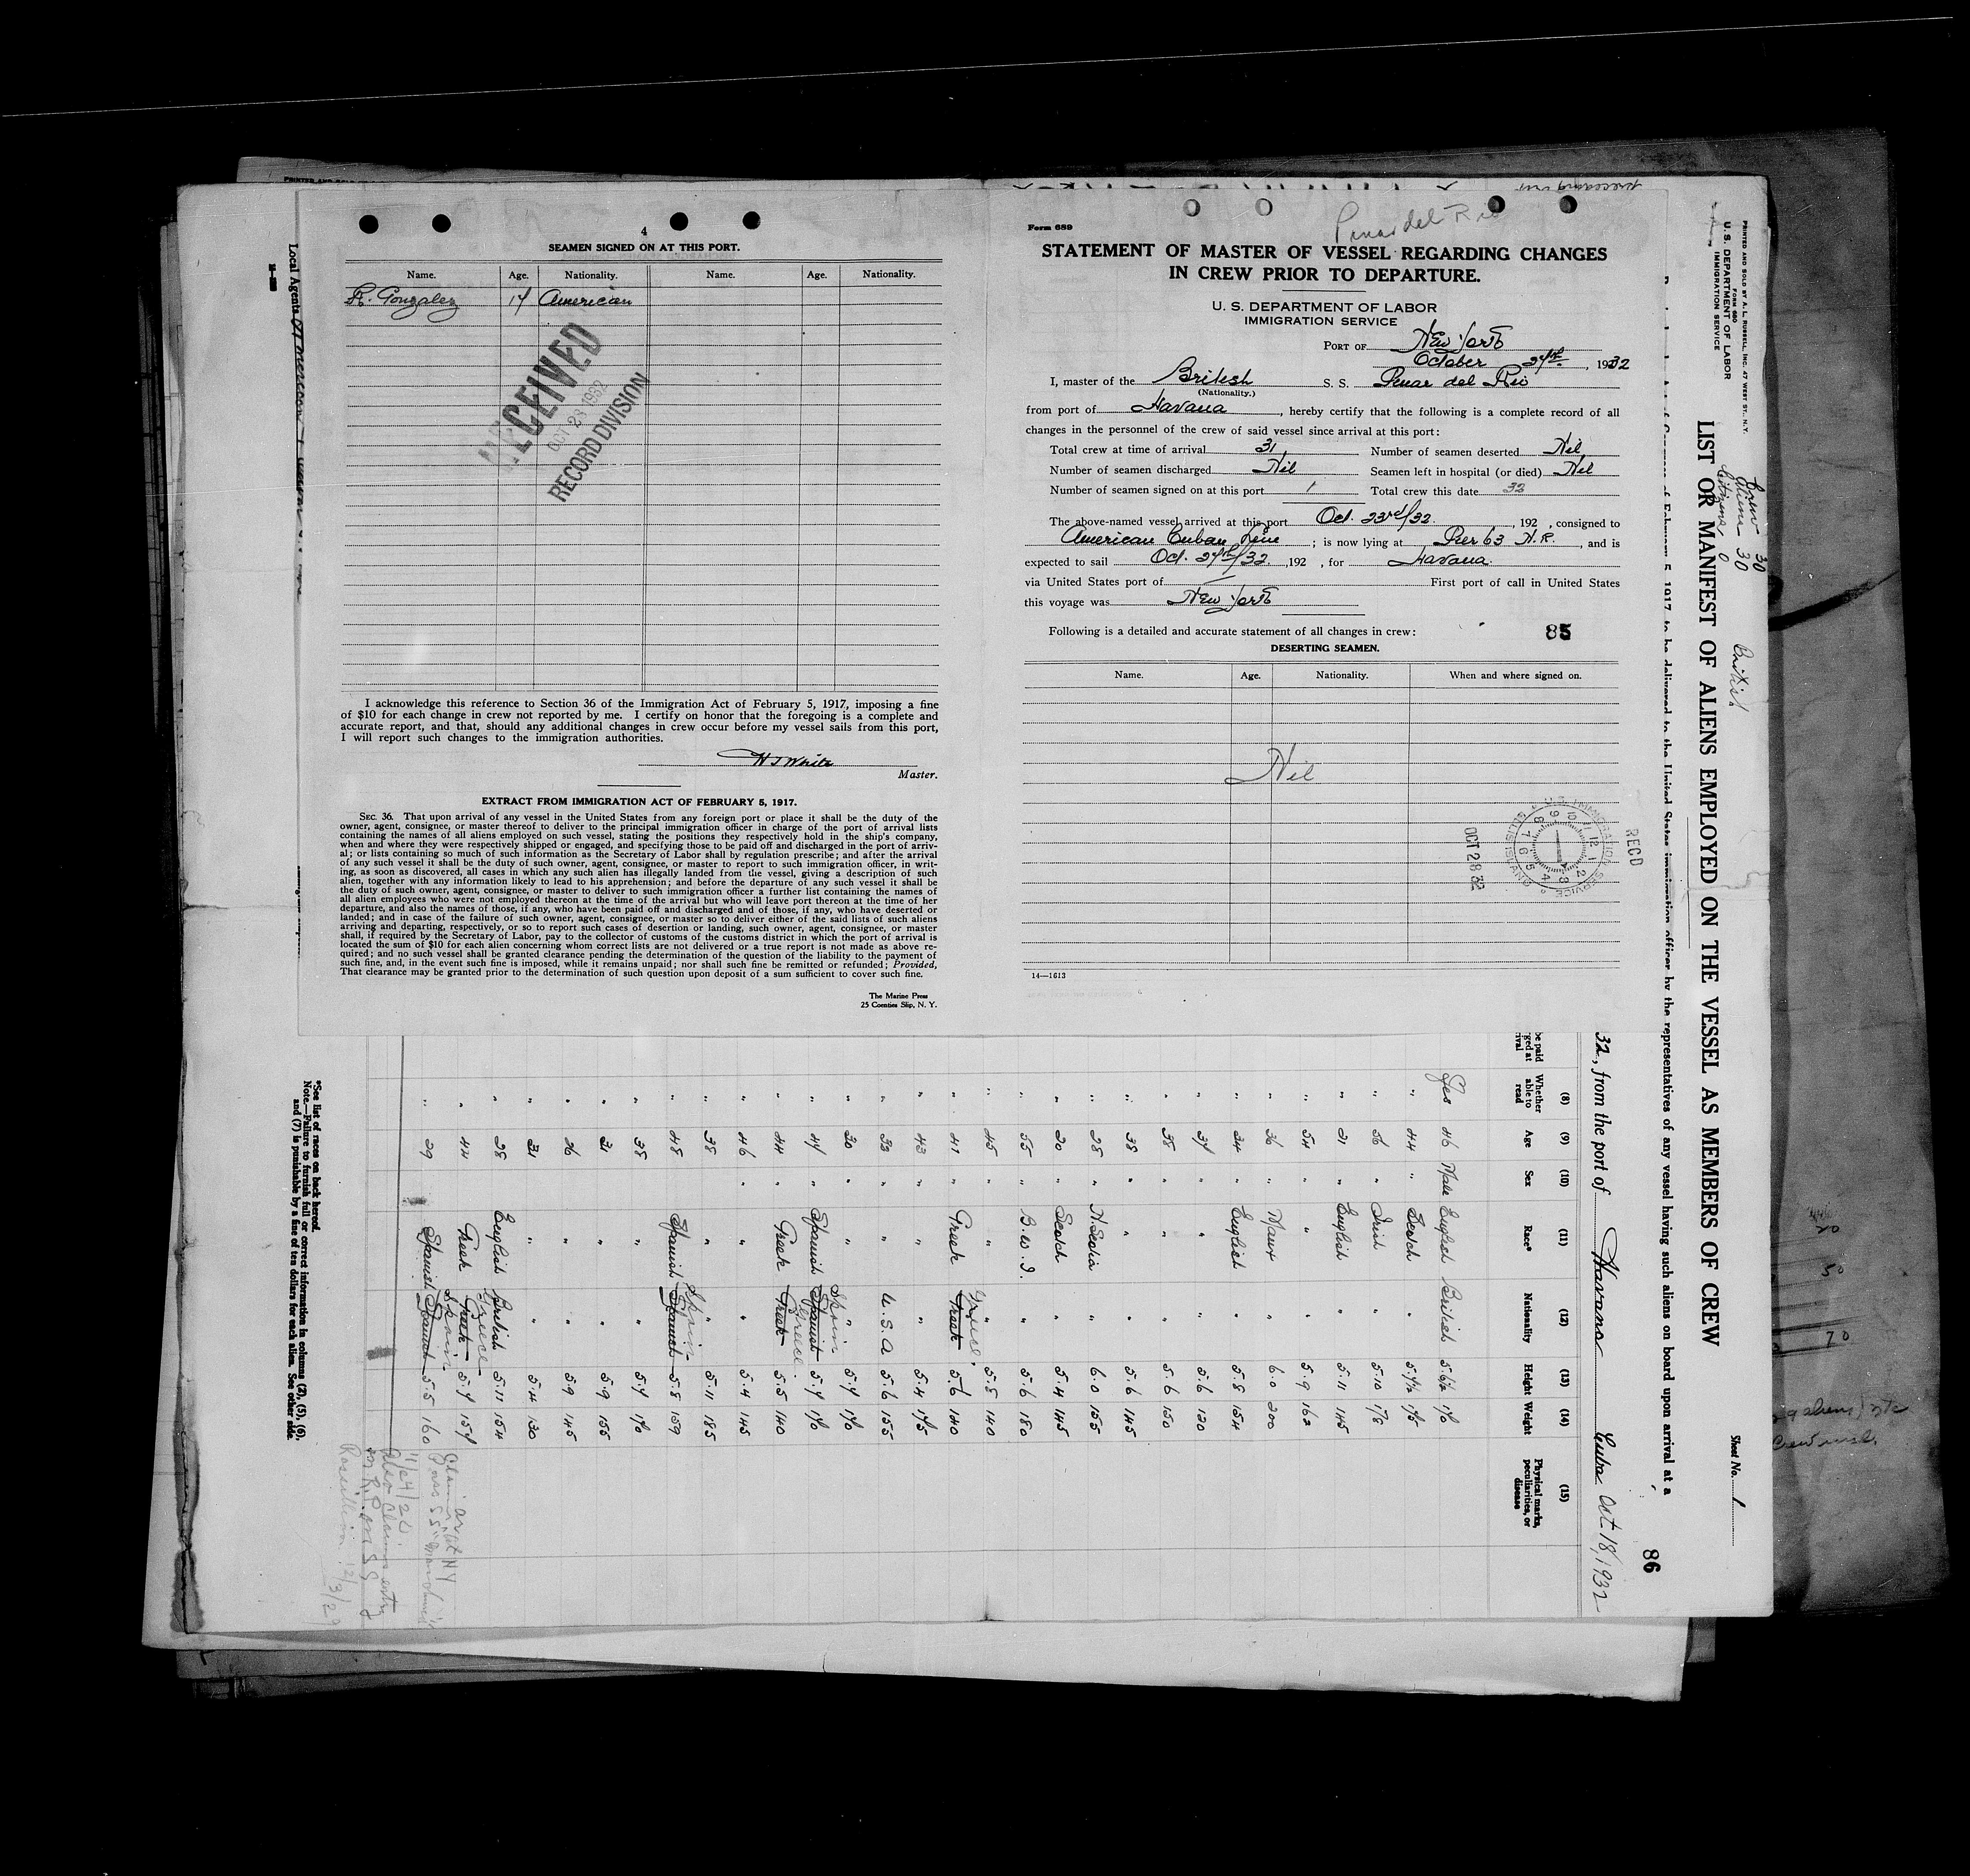 4
SEAMEN SIGNED ON AT THIS PORT.
Name. Age. Nationality. Name. Age. Nationality.
R. Gonzalez 17 American
RECEIVED
OCT 28 1932
RECORD DIVISION
I acknowledge this reference to Section 36 of the Immigration Act of February 5, 1917, imposing a fine
of $10 for each change in crew not reported by me. I certify on honor that the foregoing is a complete and
accurate report, and that, should any additional changes in crew occur before my vessel sails from this port,
I will report such changes to the immigration authorities.
H J White
Master.
EXTRACT FROM IMMIGRATION ACT OF FEBRUARY 5, 1917.
SEC. 36. That upon arrival of any vessel in the United States from any foreign port or place it shall be the duty of the
owner, agent, consignee, or master thereof to deliver to the principal immigration officer in charge of the port of arrival lists
containing the names of all aliens employed on such vessel, stating the positions they respectively hold in the ship's company,
when and where they were respectively shipped or engaged, and specifying those to be paid off and discharged in the port of arriv-
al; or lists containing so much of such information as the Secretary of Labor shall by regulation prescribe; and after the arrival
of any such vessel it shall be the duty of such owner, agent, consignee, or master to report to such immigration officer, in writ-
ing, as soon as discovered, all cases in which any such alien has illegally landed from the vessel, giving a description of such
alien, together with any information likely to lead to his apprehension; and before the departure of any such vessel it shall be
the duty of such owner, agent, consignee, or master to deliver to such immigration officer a further list containing the names of
all alien employees who were not employed thereon at the time of the arrival but who will leave port thereon at the time of her
departure, and also the names of those, if any, who have been paid off and discharged and of those, if any, who have deserted or
landed; and in case of the failure of such owner, agent, consignee, or master so to deliver either of the said lists of such aliens
arriving and departing, respectively, or so to report such cases of desertion or landing, such owner, agent, consignee, or master
shall, if required by the Secretary of Labor, pay to the collector of customs of the customs district in which the port of arrival is
located the sum of $10 for each alien concerning whom correct lists are not delivered or a true report is not made as above re-
quired; and no such vessel shall be granted clearance pending the determination of the question of the liability to the payment of
such fine, and, in the event such fine is imposed, while it remains unpaid; nor shall such fine be remitted or refunded; Provided,
That clearance may be granted prior to the determination of such question upon deposit of a sum sufficient to cover such fine.
The Marine Press
25 Coenties Slip, N. Y.
Form 689
Pinar del Rio
STATEMENT OF MASTER OF VESSEL REGARDING CHANGES
IN CREW PRIOR TO DEPARTURE.
U. S. DEPARTMENT OF LABOR
IMMIGRATION SERVICE
PORT OF New York
October 27th, 1932
I, master of the British S. S. Pinar del Rio
(Nationality.)
from port of Havana, hereby certify that the following is a complete record of all
changes in the personnel of the crew of said vessel since arrival at this port:
Total crew at time of arrival 31 Number of seamen deserted Nil
Number of seamen discharged Nil Seamen left in hospital (or died) Nil
Number of seamen signed on at this port 1 Total crew this date 32
The above-named vessel arrived at this port Oct. 23rd/32, 192 , consigned to
American Cuban Line ; is now lying at Pier 63 N.R. , and is
expected to sail Oct. 27th/32 ,192 , for Havana.
via United States port of First port of call in United States
this voyage was New York
Following is a detailed and accurate statement of all changes in crew:
85
DESERTING SEAMEN.
Name. Age. Nationality. When and where signed on.
Nil
U.S. IMMIGRATION SERVICE
ELLIS ISLAND
RECD
OCT 28 32
14—1613
PRINTED AND SOLD BY A. L. RUSSELL, INC. 47 WEST ST., N.Y.
FORM 680
U. S. DEPARTMENT OF LABOR
IMMIGRATION SERVICE
Crew 30
Aliens 30
Citizens 0
British
Sheet No. 1
LIST OR MANIFEST OF ALIENS EMPLOYED ON THE VESSEL AS MEMBERS OF CREW
5, 1917, to be delivered to the United States immigration officer by the representatives of any vessel having such aliens on board upon arrival at a
86
32, from the port of Havana Cuba Oct. 18, 1932
(8) (9) (10) (11) (12) (13) (14) (15)
Whether able to read Age Sex Race* Nationality Height Weight Physical marks, peculiarities, or disease
Yes 46 Male English British 5-6½ 170
" 44 " Scotch " 5.7½ 175
" 36 " Irish " 5.10 178
" 21 " English " 5.11 145
" 54 " " " 5.9 162
" 36 " Manx " 6.0 200
" 24 " English " 5.8 154
" 37 " " " 5.6 120
" 38 " " " 5.6 150
" 38 " " " 5.6 145
" 28 " N. Scotia " 6.0 155
" 20 " Scotch " 5.4 145
" 55 " B.W.I. " 5.6 180
" 45 " " " 5.8 140
" 41 " Greek Greek Greece 5.6 140
" 43 " " " 5.4 175
" 33 " " U.S.A 5.6 155
" 30 " " " 5.7 170
" 47 " Spanish Spanish Spain 5.7 170
" 44 " Greek Greek Greece 5.5 140
" 46 " " " 5.4 145
" 38 " " " 5.11 185
" 48 Spanish Spanish Spain 5.8 159
" 38 " " 5.7 170
" 31 " " 5.9 155
" 26 " " 5.9 145
" 31 " " 5.4 130
" 28 English British 5.11 154
" 44 Greek Greek Greece 5.7 157
" 29 Spanish Spanish Spain 5.5 160
*See list of races on back hereof.
Note.—Failure to furnish full or correct information in columns (2), (5), (6),
and (7) is punishable by a fine of ten dollars for each alien. See other side.
Local Agents